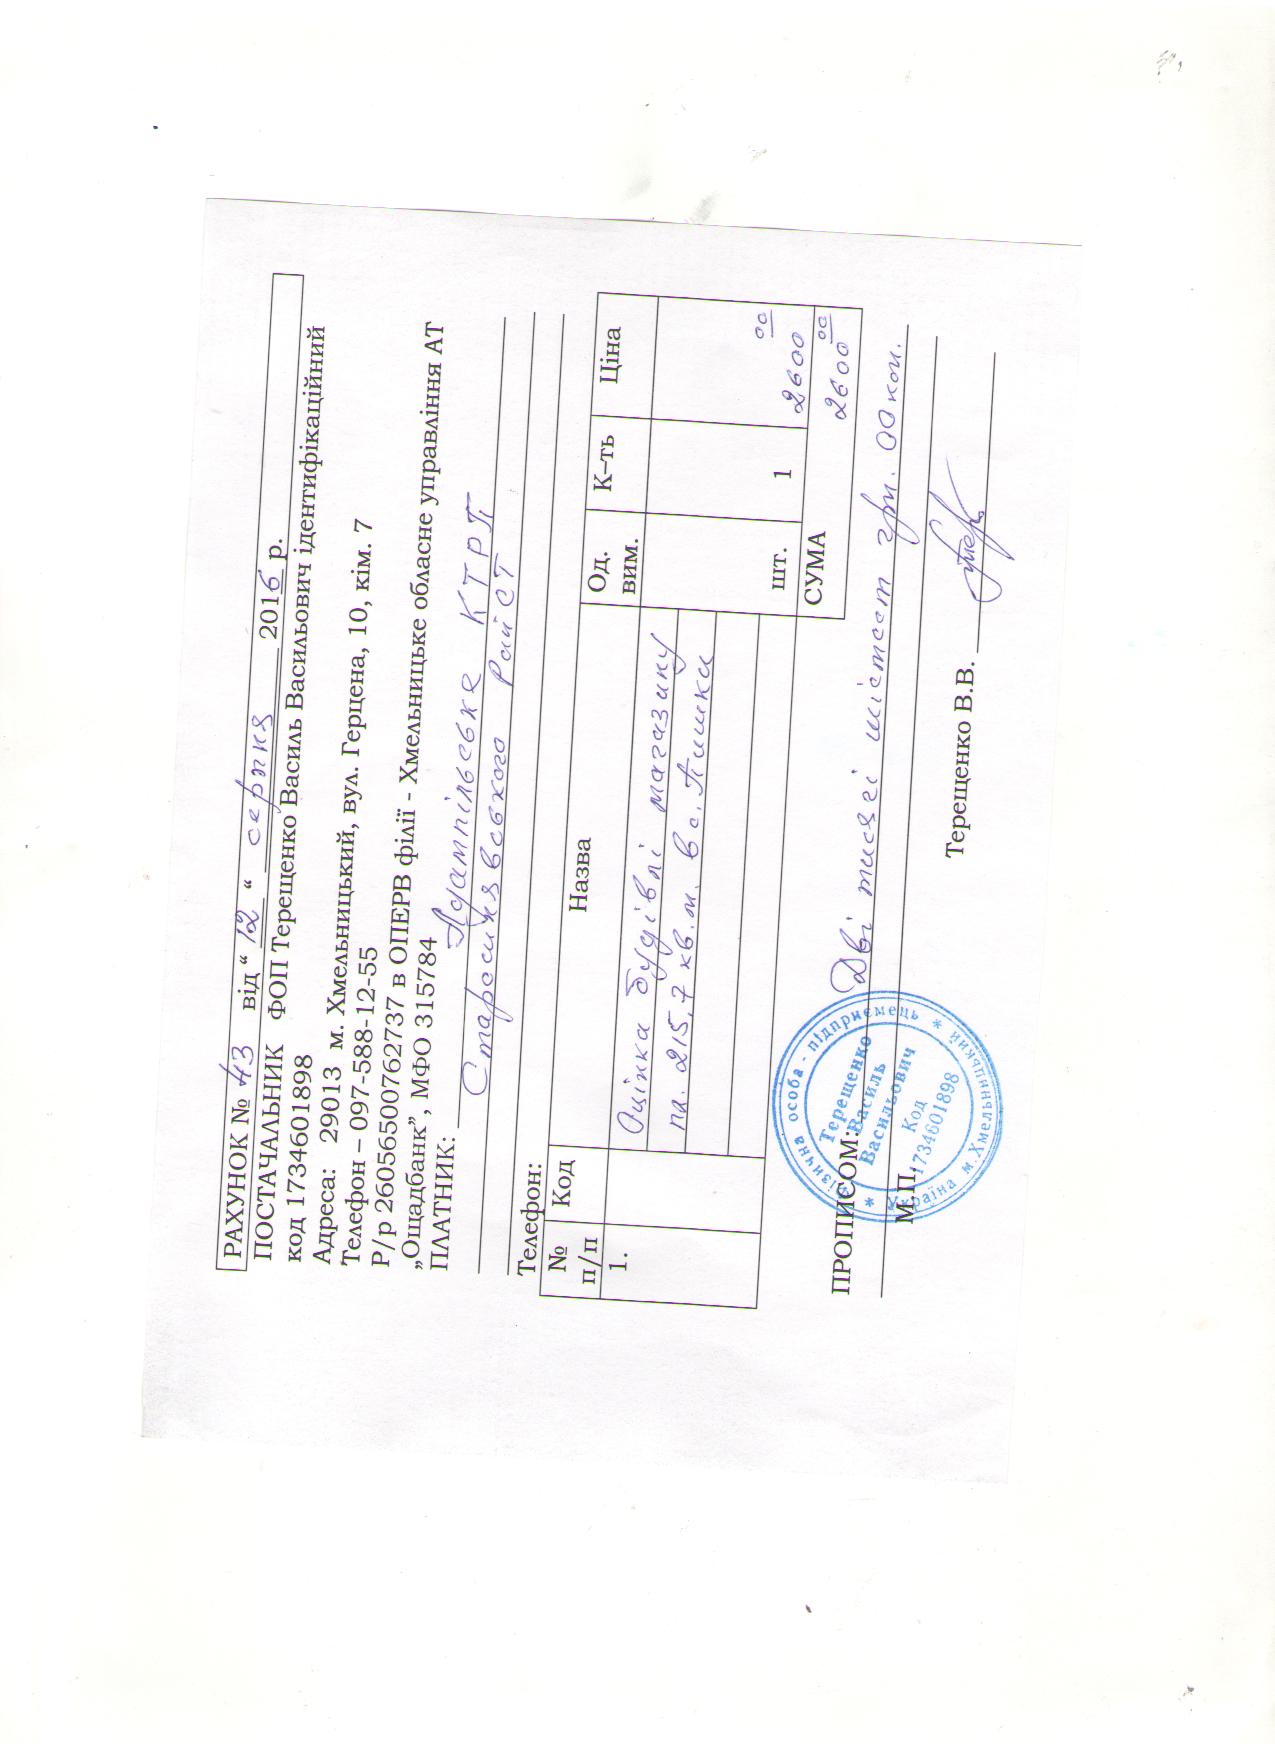 РАХУНОК № 43 від “ 12 “ серпня 2016 р.
ПОСТАЧАЛЬНИК ФОП Терещенко Василь Васильович ідентифікаційний
код 1734601898
Адреса: 29013 м. Хмельницький, вул. Герцена, 10, кім. 7
Телефон – 097-588-12-55
Р/р 26056500762737 в ОПЕРВ філії - Хмельницьке обласне управління АТ
„Ощадбанк”, МФО 315784
ПЛАТНИК: Адампільське КТРП
Старосинявського РайСТ
Телефон:
№ п/п Код Назва Од. вим. К–ть Ціна
1. Оцінка будівлі магазину
пл. 215,7 кв.м. в с. Пишки
шт. 1 2600 00
СУМА 2600 00
ПРОПИСОМ: Дві тисячі шістсот грн. 00 коп.
М.П.
Терещенко В.В.
Фізична особа - підприємець
Україна м.Хмельницький
Терещенко
Василь
Васильович
Код
1734601898